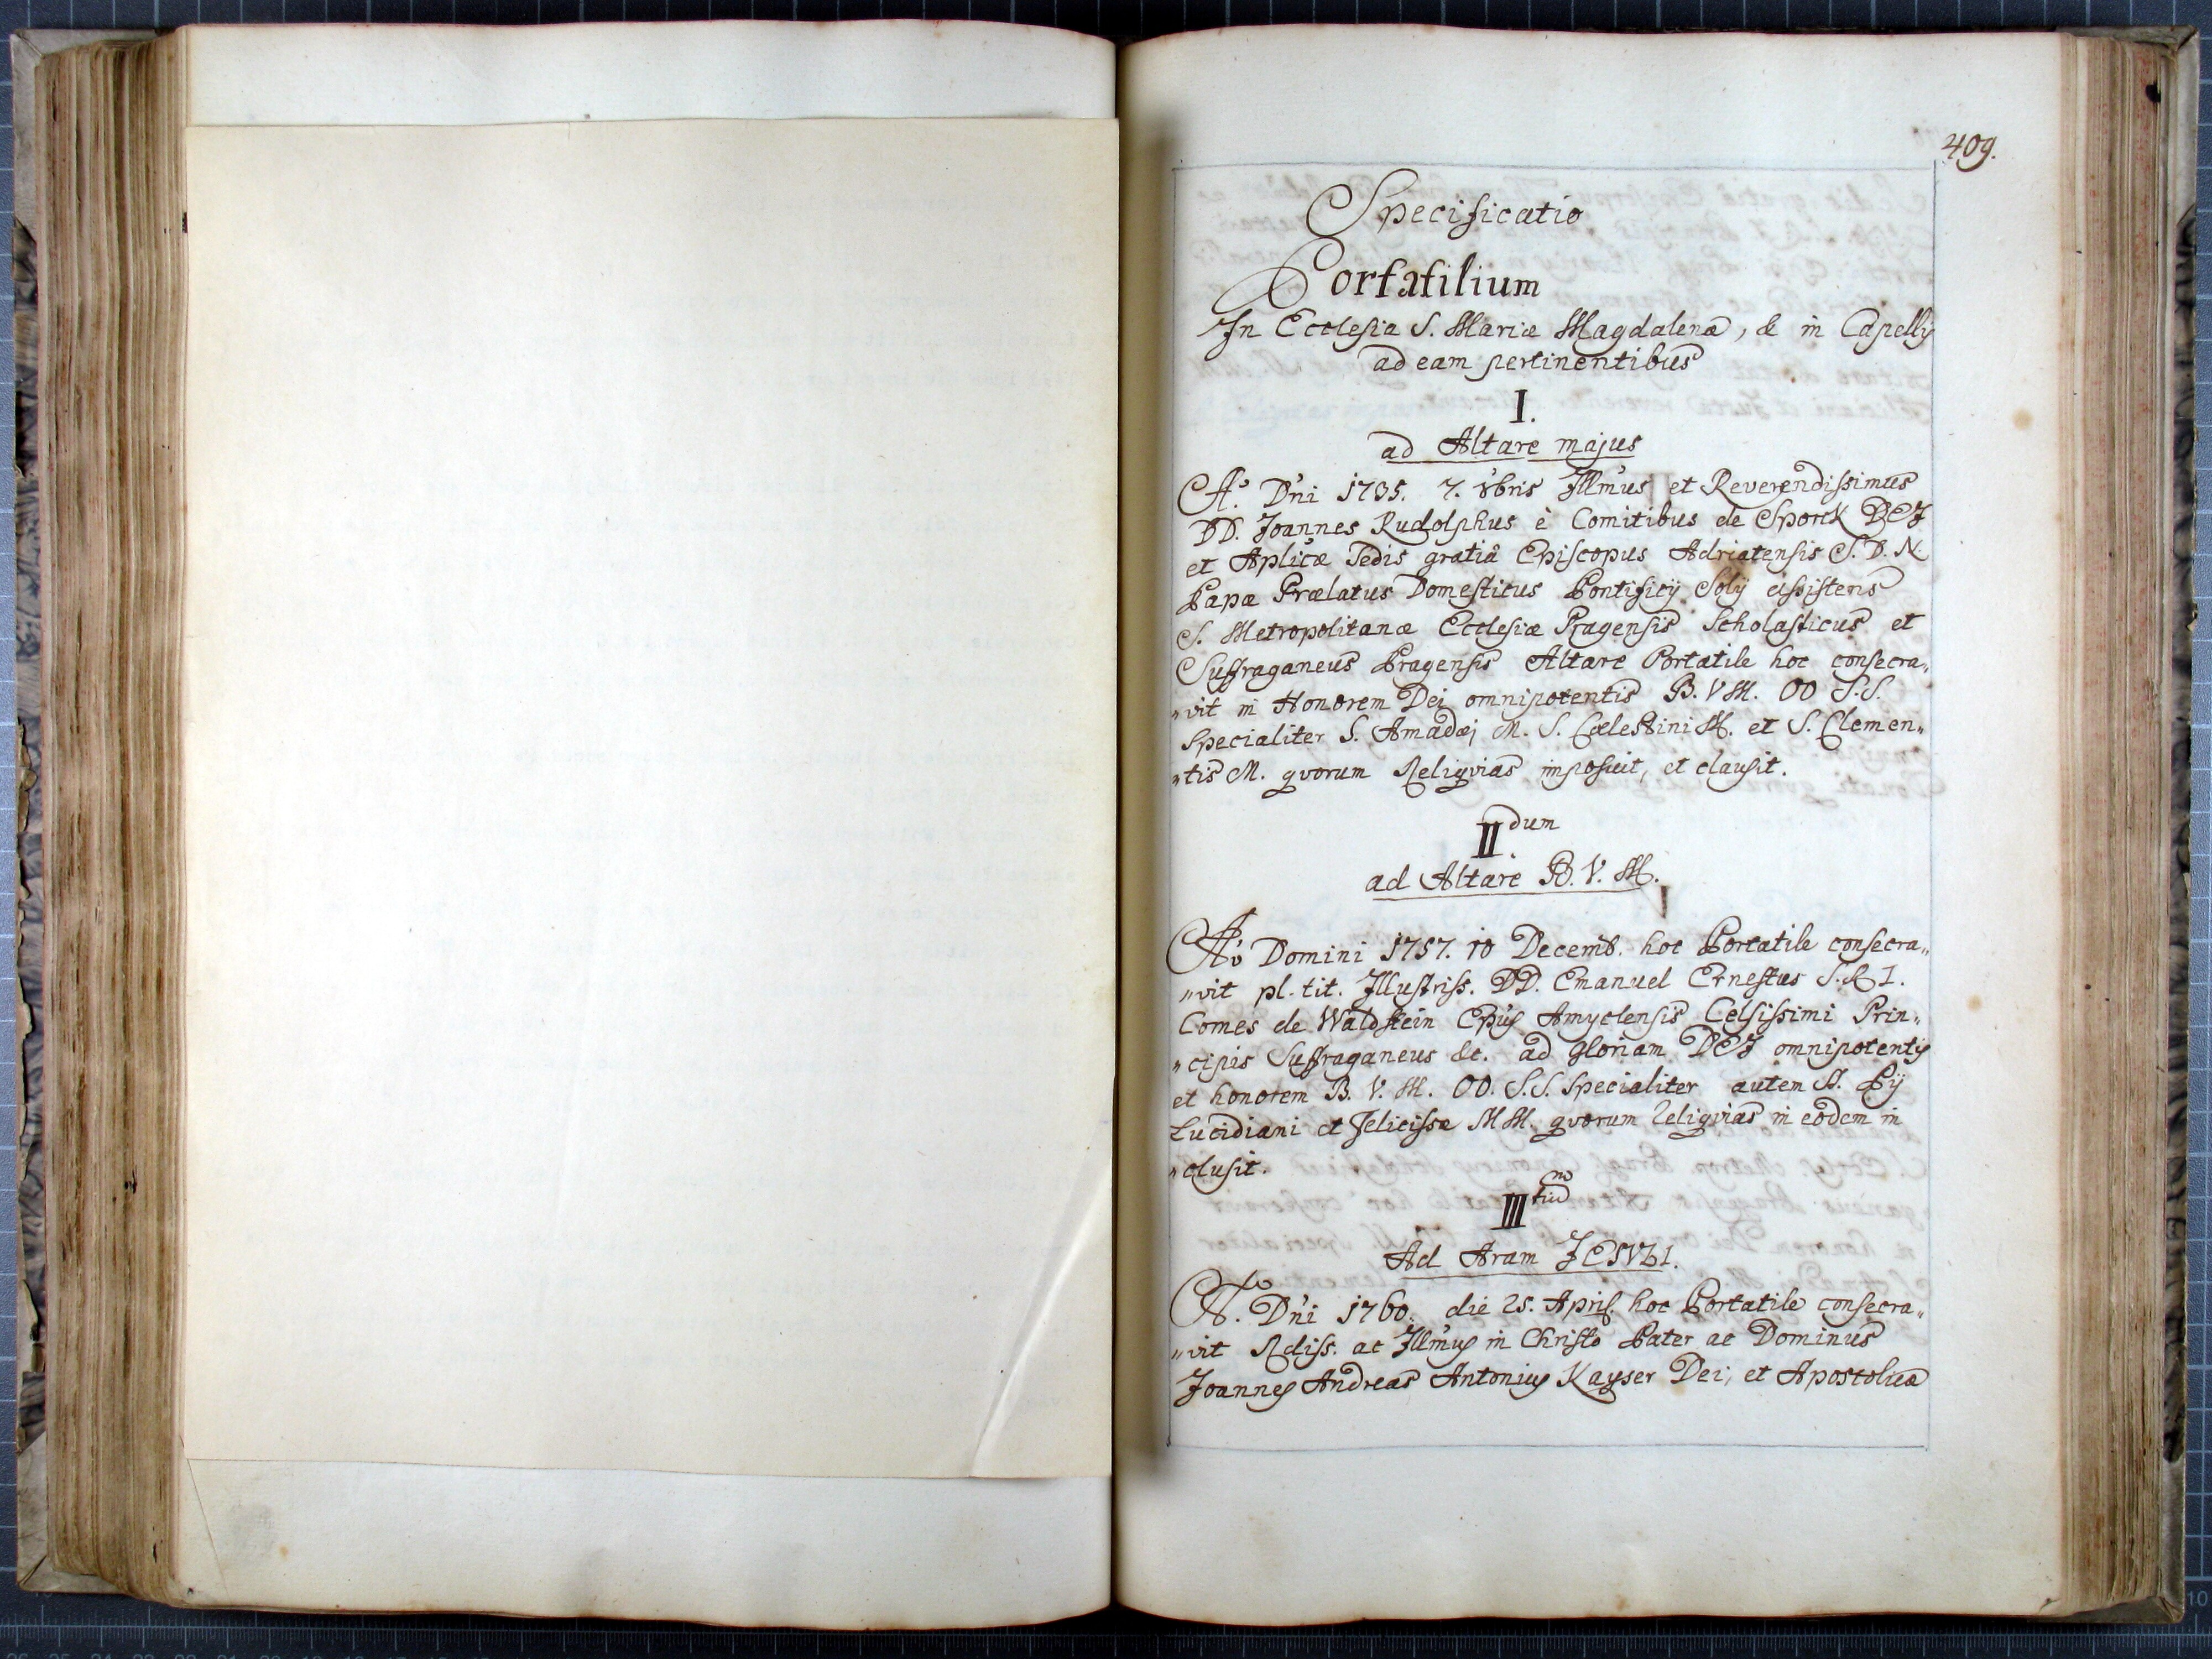 409.
Specificatio
Portatilium
In Ecclesia S. Mariæ Magdalenæ, & in Capellis
ad eam pertinentibus
I.
ad Altare majus
Aº Dn̄i 1735. 7. 8bris Illm̄us et Reverendissimus
DD. Joannes Rudolphus è Comitibus de Sporck DEI
et Aplicæ Sedis gratiâ Episcopus Adriatensis S. D. N.
Papæ Prælatus Domesticus Pontificij Solij assistens
S. Metropolitanæ Ecclesiæ Pragensis Scholasticus et
Suffraganeus Pragensis Altare Portatile hoc consecra„
„vit in Honorem Dei omnipotentis B. V M. OO S.S.
Specialiter S. Amadæi M. S. Cœlestini M. et S. Clemen„
„tis M. qvorum Reliqvias imposuit, et clausit.
II.dum
ad Altare B. V. M.
Aº Domini 1757. 10 Decemb. hoc Portatile consecra„
„vit pl. tit. Illustriss. DD. Emanuel Ernestus S. R I.
Comes de Waldstein Epūs Amyclensis Celsissimi Prin„
„cipis Suffraganeus &c. ad Gloriam DEI omnipotentis
et honorem B. V. M. OO. S.S. Specialiter autem SS. Pij
Lucidiani et Felicissæ MM. qvorum Reliqvias in eodem in
„clusit.
III tium
Ad Aram JESULI.
Aº. Dn̄i 1760. die 25. April. hoc Portatile consecra„
„vit Rdiss. ac Illm̄us in Christo Pater ac Dominus
Joannes Andreas Antonius Kayser Dei, et Apostolicæ